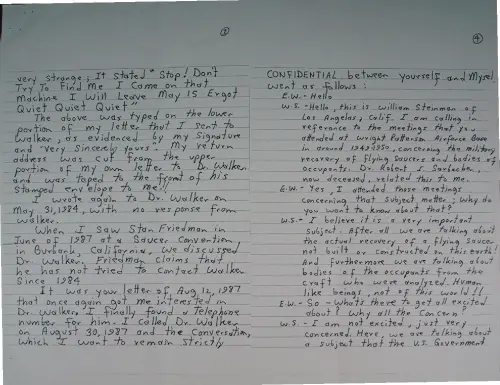 ③
very strange; It stated "Stop! Don't
Try To Find Me I Came on that
Machine I Will Leave May 15 Ergot
Quiet Quiet Quiet"
The above was typed on the lower
portion of my letter that I sent to
Walker, as evidenced by my Signature
and "Very Sincerely yours". My return
address was cut from the upper
portion of my own letter to Dr. Walker
and was taped to the front of his
Stamped envelope to me!!
I wrote again to Dr. Walker on
May, 31, 1984, with no response from
Walker.
When I saw Stan Friedman in
June of 1987 at a Saucer Convention
in Burbank, California, we discussed
Dr. Walker. Friedman claims that
he has not tried to contact Walker
Since 1984
It was your letter of Aug, 12, 1987
that once again got me interested in
Dr. Walker. I finally found a Telephone
number for him. I called Dr. Walker
on August 30, 1987 and the Conversation,
which I want to remain Strictly
④
CONFIDENTIAL between yourself and Myself
went as follows:
E.W.- Hello
W.S.- Hello, this is William Steinman of
Los Angeles, Calif. I am calling in
reference to the meetings that you
attended at Wright Patterson Airforce Base
in around 1949, 1950, concerning the military
recovery of Flying Saucers and bodies of
occupants. Dr. Robert I. Sarbacher,
now deceased, related this to me.
E.W.- Yes, I attended those meetings
concerning that subject matter; Why do
you want to know about that?
W.S.- I believe it is a very important
Subject. After all we are talking about
the actual recovery of a flying Saucer
not built or constructed on this earth!
And furthermore we are talking about
bodies of the occupants from the
craft who were analyzed. Human
like beings, not of this world!!
E.W.- So - Whats there to get all excited
about? Why all the Concern?
W.S.- I am not excited, just very
Concerned. Here, we are talking about
a subject that the U.S. Government